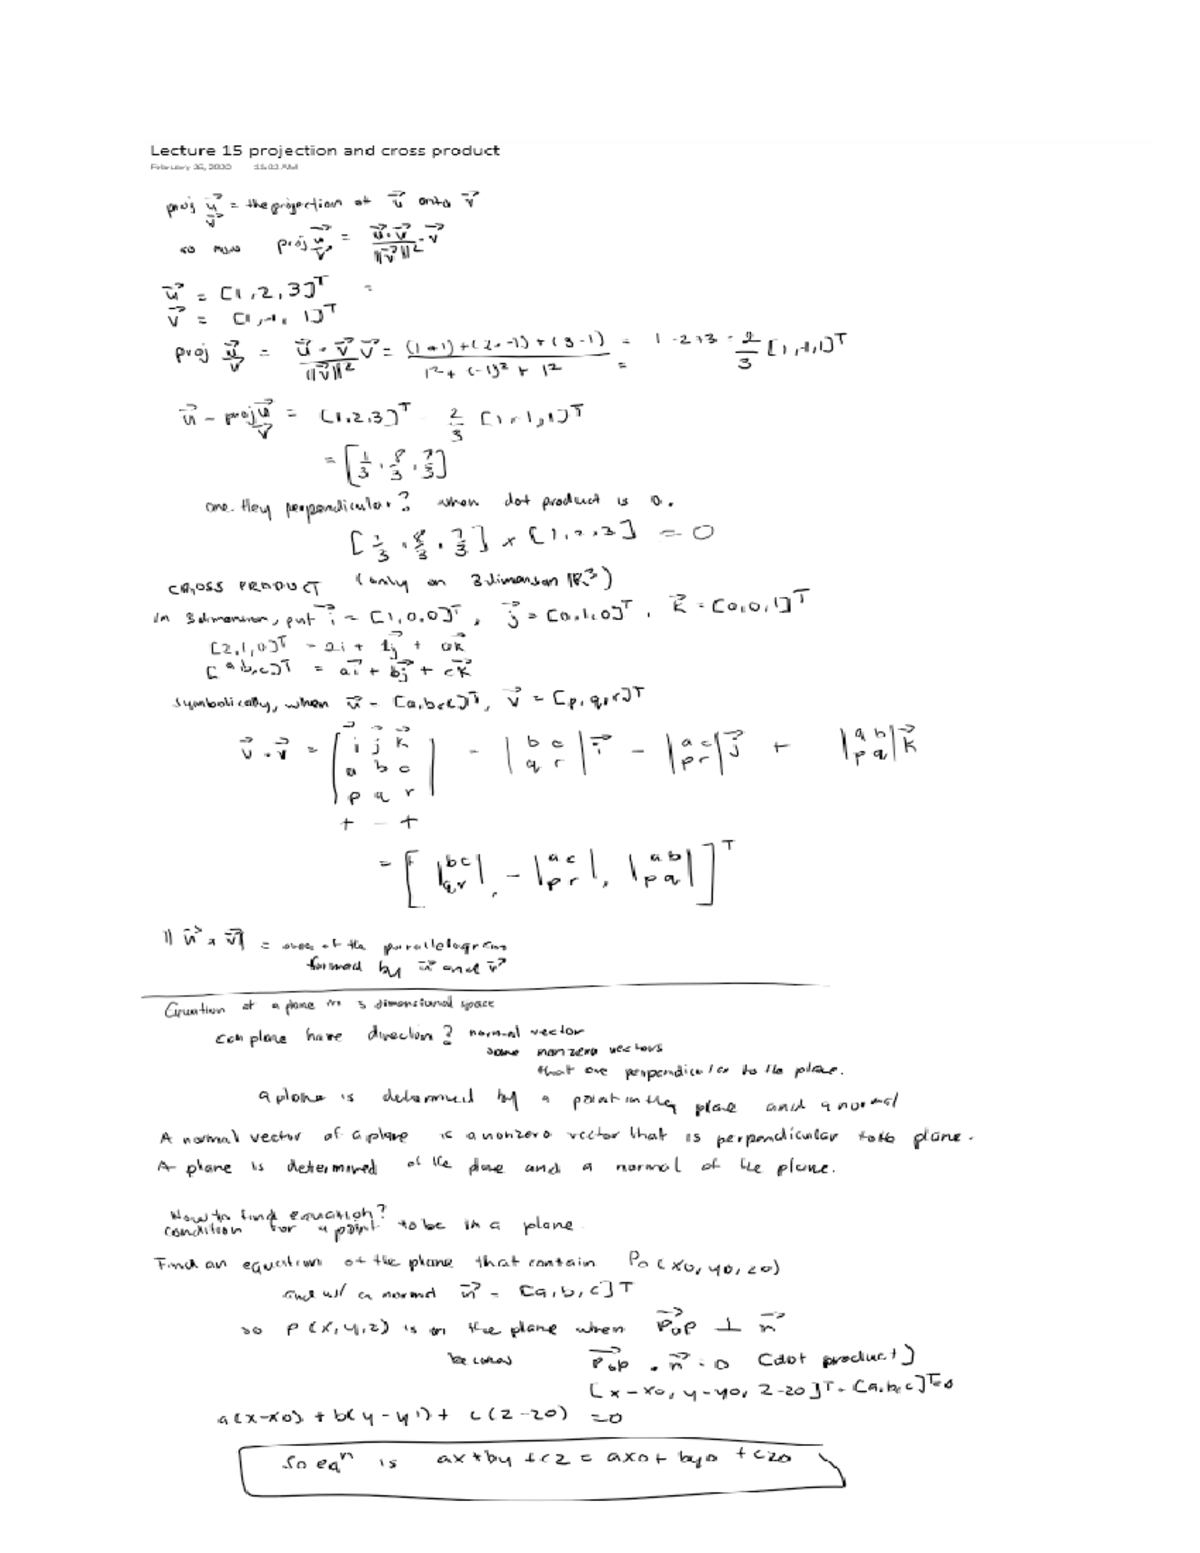 Lecture 15 projection and cross product
February 26, 2020 11:02 AM
proj u⃗ v⃗ = the projection of u⃗ onto v⃗
so now proj u⃗ v⃗ = u⃗·v⃗ / ||v⃗||² · v⃗
u⃗ = [1, 2, 3]ᵀ =
v⃗ = [1, -1, 1]ᵀ
proj u⃗ v⃗ = u⃗·v⃗ / ||v⃗||² v⃗ = (1·1)+(2·-1)+(3·1) / 1²+(-1)²+1² = = 1-2+3 = 2/3 [1,-1,1]ᵀ
u⃗ - proj u⃗ v⃗ = [1,2,3]ᵀ - 2/3 [1,-1,1]ᵀ
= [1/3, 8/3, 7/3]
are they perpendicular? when dot product is 0.
[1/3, 8/3, 7/3] × [1,2,3] = 0
CROSS PRODUCT (only on 3 dimension ℝ³)
in 3 dimension, put i⃗ = [1,0,0]ᵀ, j⃗ = [0,1,0]ᵀ, k⃗ = [0,0,1]ᵀ
[2,1,0]ᵀ = 2i + 1j⃗ + 0k⃗
[a,b,c]ᵀ = ai⃗ + bj⃗ + ck⃗
symbolically, when u⃗ = [a,b,c]ᵀ, v⃗ = [p,q,r]ᵀ
u⃗ · v⃗ = | i⃗ j⃗ k⃗ | = | b c | i⃗ - | a c | j⃗ + | a b | k⃗
| a b c | | q r | | p r | | p q |
| p q r |
+ - +
= [ |b c| , - |a c| , |a b| ]ᵀ
|q r| |p r| |p q|
|| u⃗ × v⃗ || = area of the parallelogram
formed by u⃗ and v⃗
Equation of a plane in 3 dimensional space
can plane have direction? normal vector
some nonzero vectors
that are perpendicular to the plane.
a plane is determined by a point in the plane and a normal
A normal vector of a plane is a nonzero vector that is perpendicular to the plane.
A plane is determined of the plane and a normal of the plane.
How to find equation?
condition for a point to be in a plane
Find an equation of the plane that contain P0(x0, y0, z0)
and w/ a normal n⃗ = [a,b,c]ᵀ
so P(x,y,z) is on the plane when P0P⃗ ⊥ n⃗
becomes P0P⃗ · n⃗ = 0 (dot product)
[x-x0, y-y0, z-z0]ᵀ · [a,b,c]ᵀ=0
a(x-x0) + b(y-y1) + c(z-z0) =0
so eqⁿ is ax+by+cz = ax0+by0+cz0